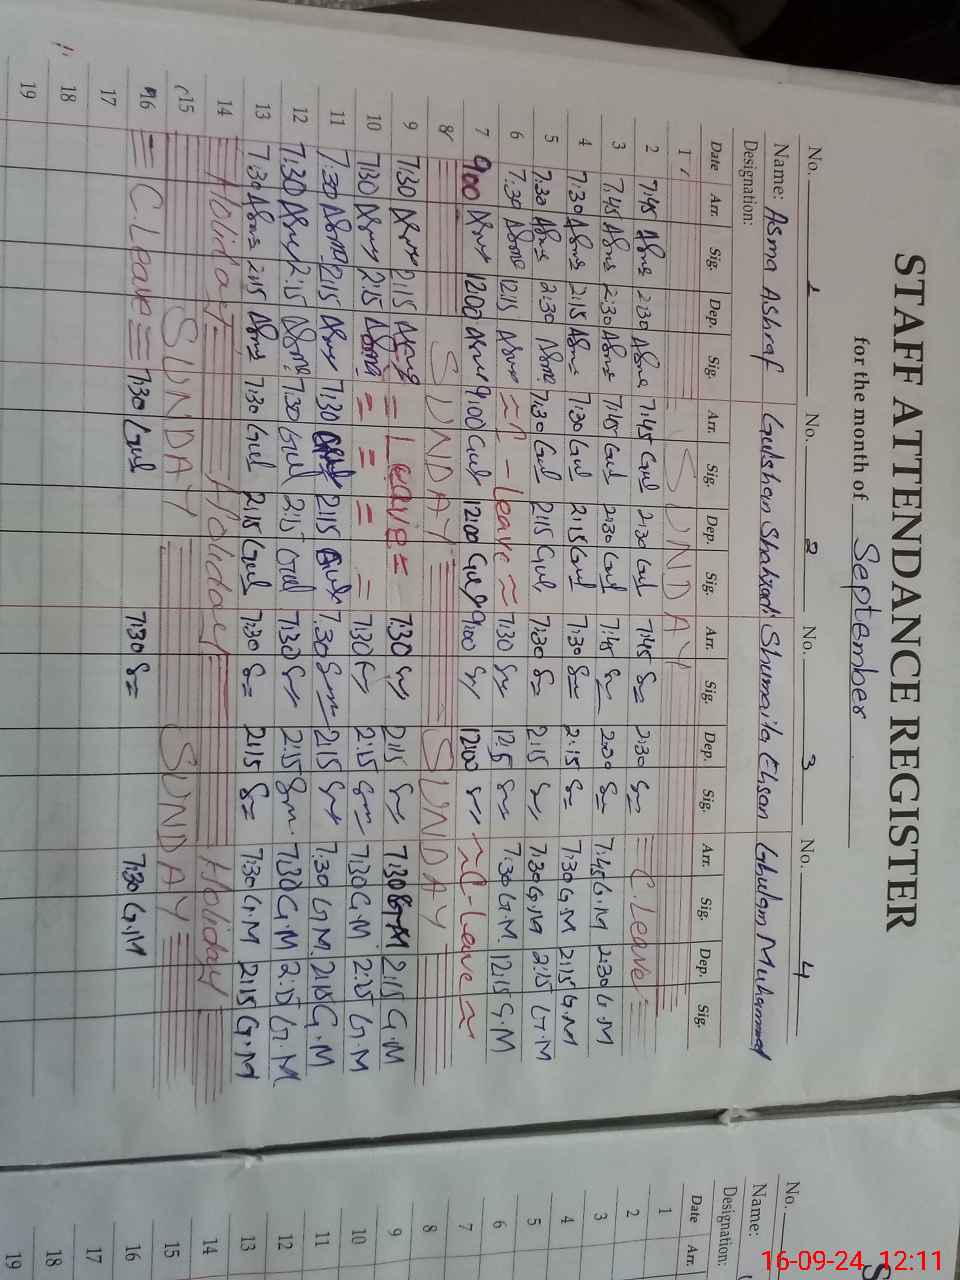 STAFF ATTENDANCE REGISTER
for the month of September
No. 1 No. 2 No. 3 No. 4
Name: Asma Ashraf Gulshan Shahzadi Shumaila Ehsan Ghulam Muhammad
Designation:
Date Arr. Sig. Dep. Sig. Arr. Sig. Dep. Sig. Arr. Sig. Dep. Sig. Arr. Sig. Dep. Sig.
1 SUNDAY
2 7:45 Asma 2:30 Asma 7:45 Gul 2:30 Gul 7:45 2:30 = C.Leave =
3 7:45 Asma 2:30 Asma 7:45 Gul 2:30 Gul 7:45 2:30 7:45 G.M 2:30 G.M
4 7:30 Asma 2:15 Asma 7:30 Gul 2:15 Gul 7:30 2:15 7:30 G.M 2:15 G.M
5 7:30 Asma 2:30 Asma 7:30 Gul 2:15 Gul 7:30 2:15 7:30 G.M 2:15 G.M
6 7:30 Asma 12:15 Asma = C-leave = 7:30 12:15 7:30 G.M 12:15 G.M
7 9:00 Asma 12:00 Asma 9:00 Gul 12:00 Gul 9:00 12:00 = C-leave =
8 SUNDAY SUNDAY
9 7:30 Asma 2:15 Asma = Leave = 7:30 2:15 7:30 G.M 2:15 G.M
10 7:30 Asma 2:15 Asma = = = = 7:30 2:15 7:30 G.M 2:15 G.M
11 7:30 Asma 2:15 Asma 7:30 Gul 2:15 Gul 7:30 2:15 7:30 G.M 2:15 G.M
12 7:30 Asma 2:15 Asma 7:30 Gul 2:15 Gul 7:30 2:15 7:30 G.M 2:15 G.M
13 7:30 Asma 2:15 Asma 7:30 Gul 2:15 Gul 7:30 2:15 7:30 G.M 2:15 G.M
14 Holiday Holiday Holiday
15 SUNDAY SUNDAY
16 = C.Leave = 7:30 Gul 7:30 7:30 G.M
17
18
19
S
No.
Name:
Designation:
Date Arr.
1
2
3
4
5
6
7
8
9
10
11
12
13
14
15
16
17
18
19
16-09-24 12:11